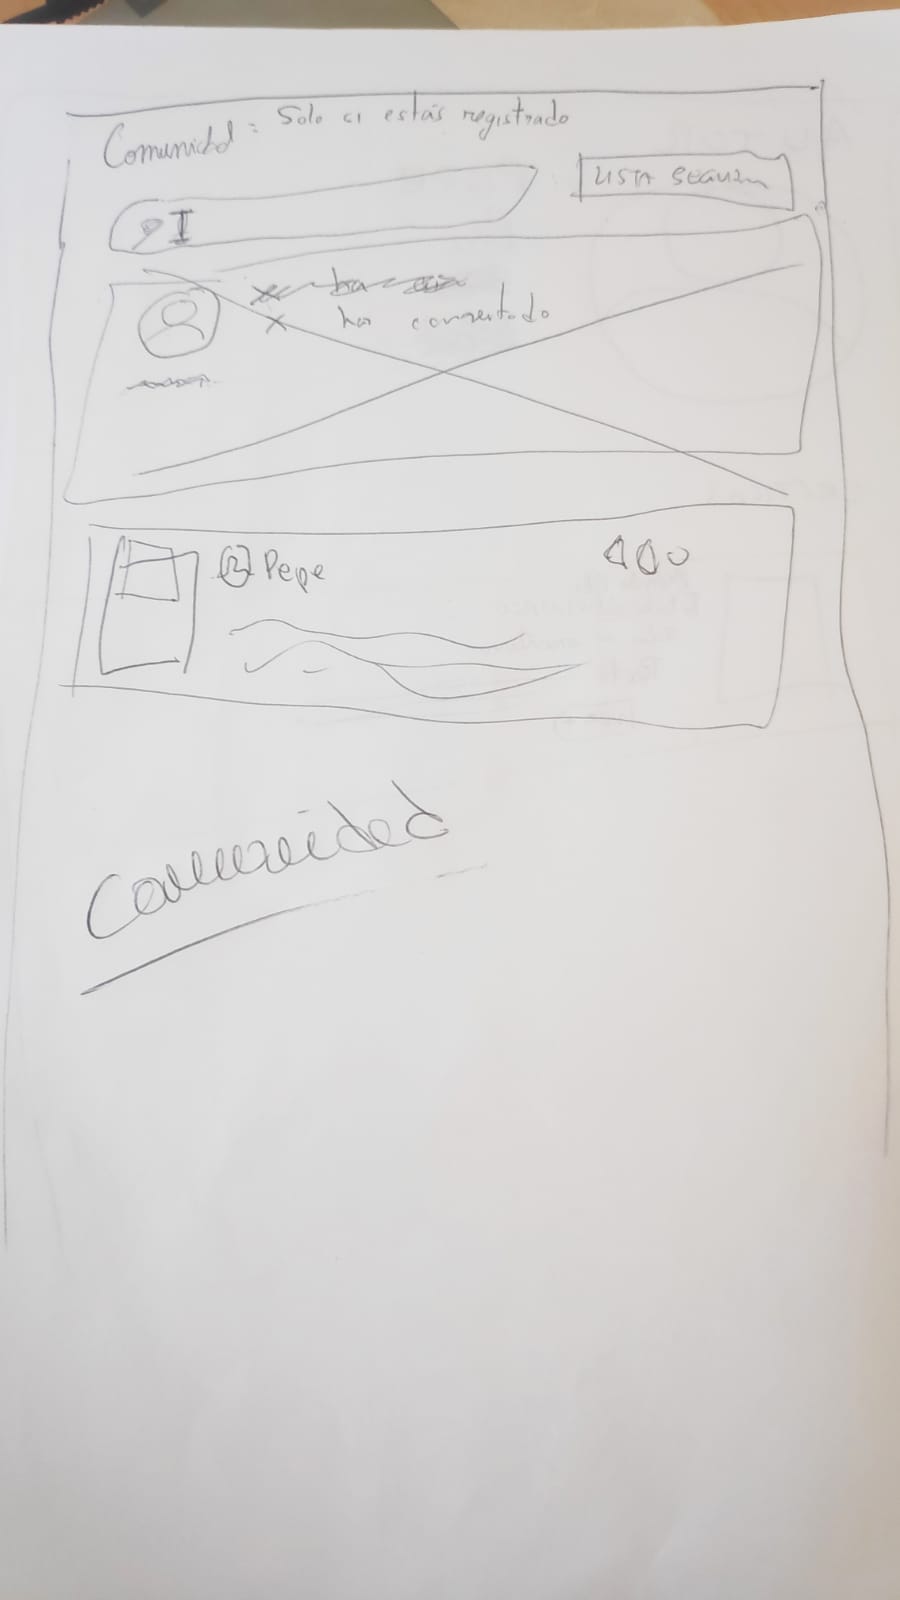 Comunidad = Solo si estás registrado
LISTA
x ha comentado
Pepe
Comunidad